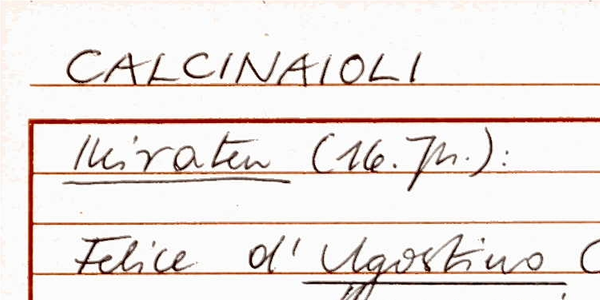 CALCINAIOLI
Heiraten (16. Jh.):
Felice d'Agostino (